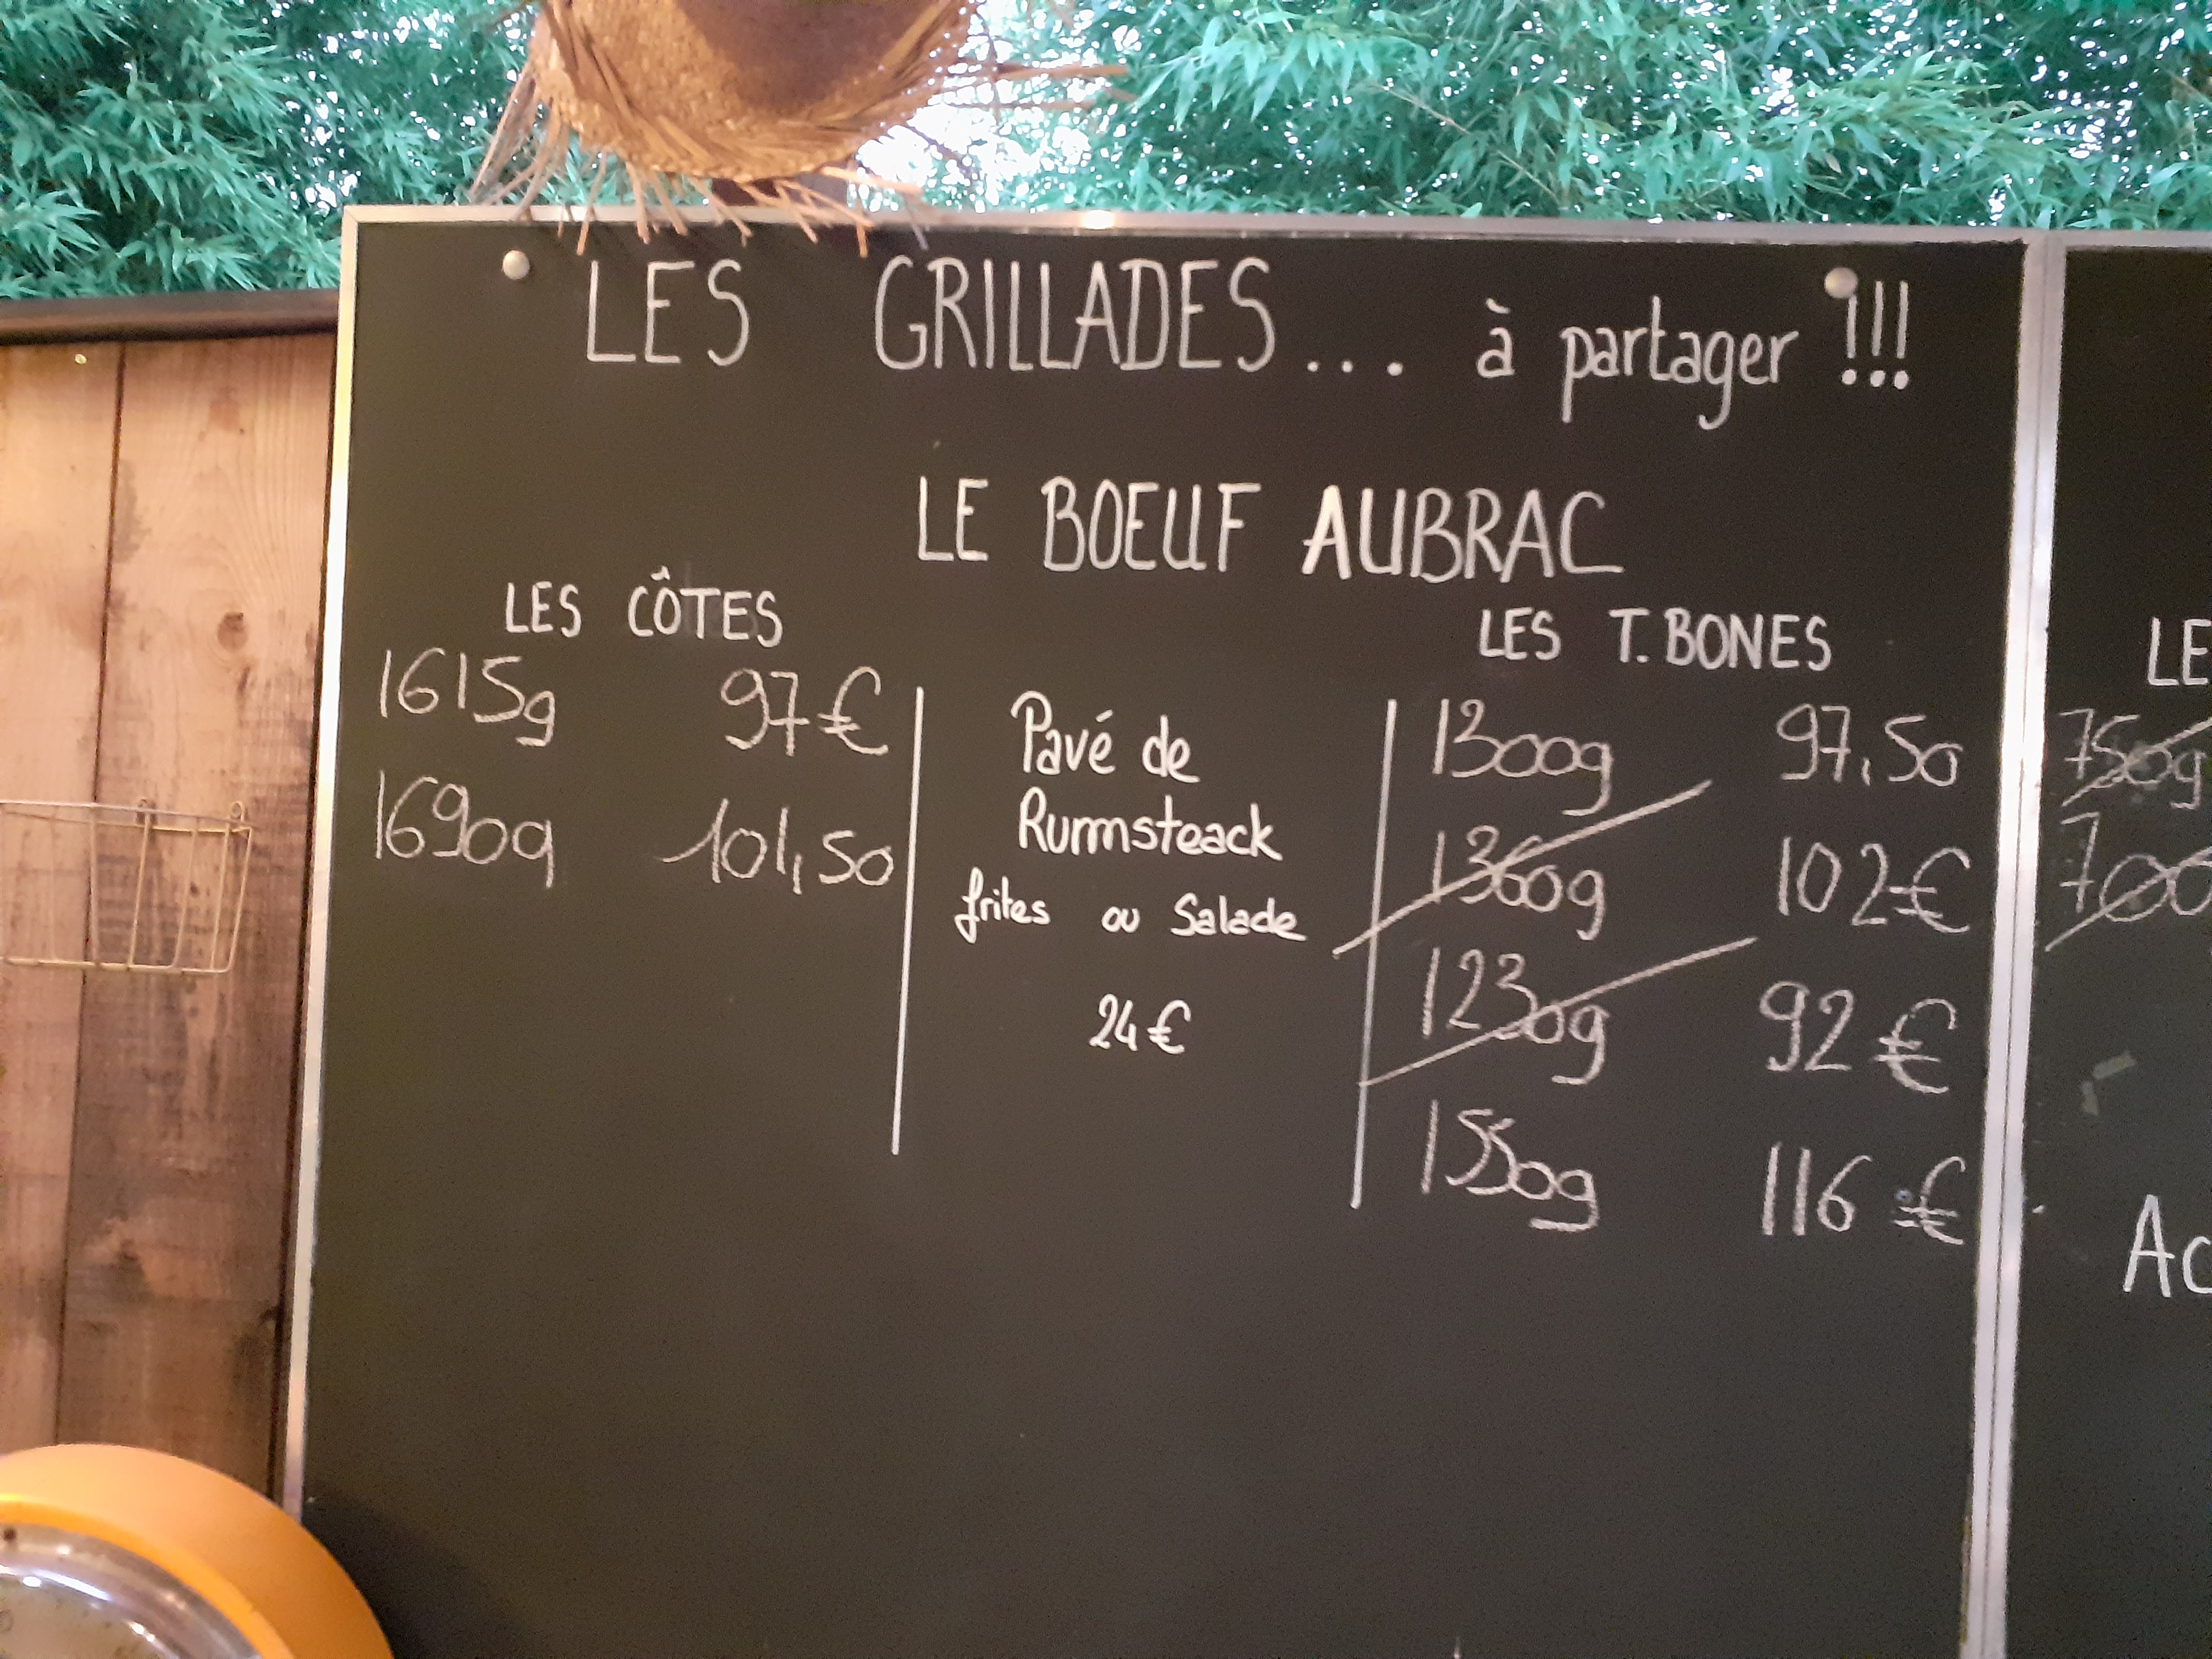 LES GRILLADES... à partager !!!
LE BOEUF AUBRAC
LES CÔTES
1615g 97€
1690g 101,50
Pavé de
Rumsteack
frites ou Salade
24€
LES T.BONES
1300g 97,50
1360g 102€
1230g 92€
1550g 116€
LE
750g
700
Ac